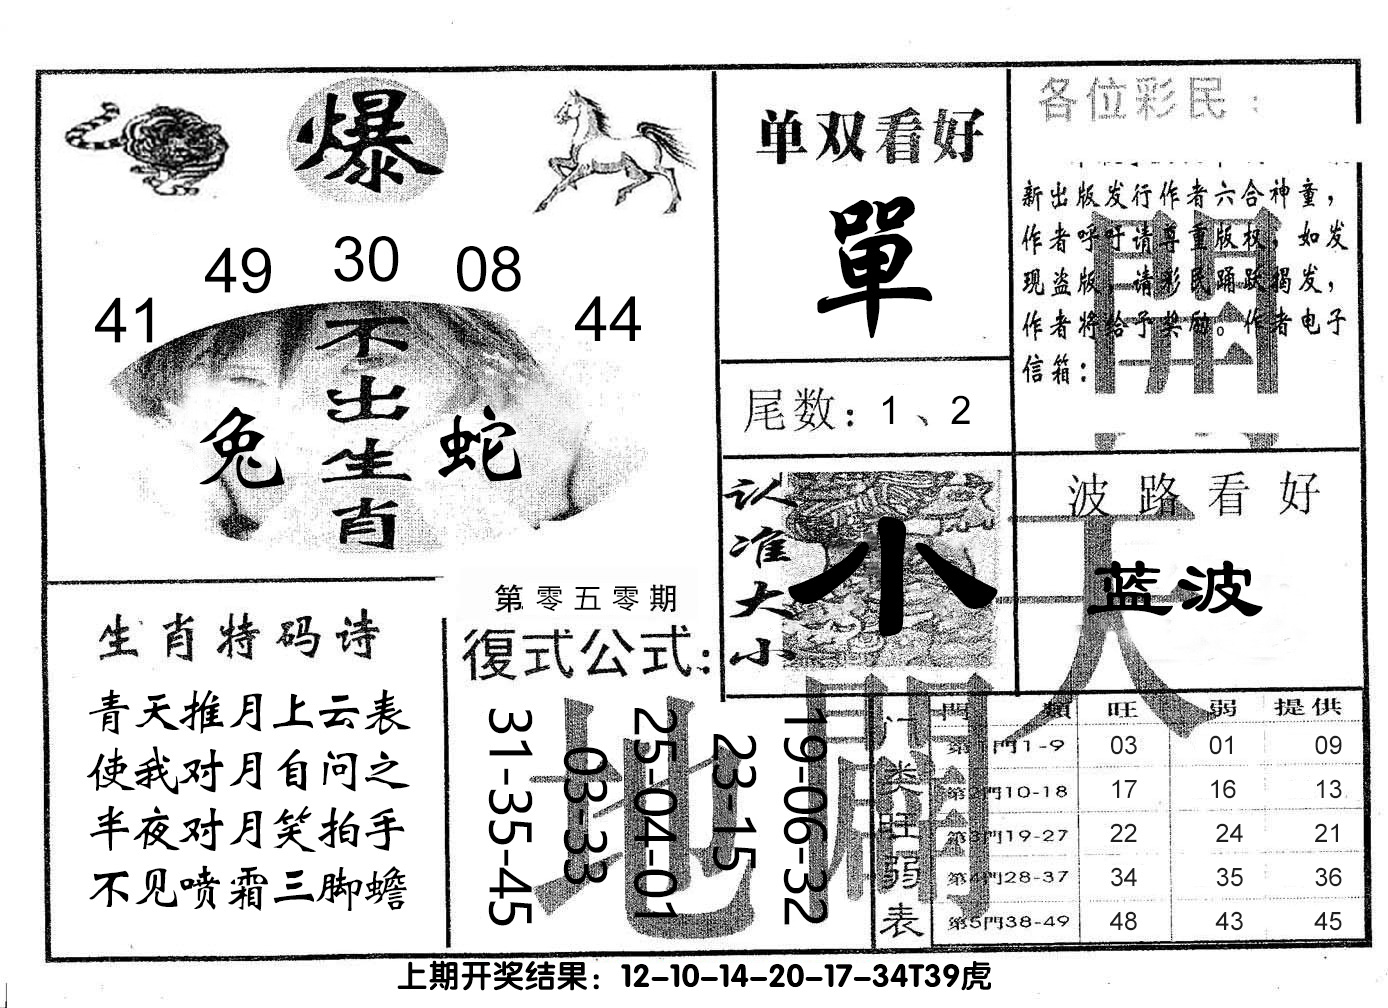 爆
49 30 08
41 44
不出生肖
兔 蛇
单双看好
單
尾数：1、2
各位彩民：
新出版发行作者六合神童，
作者呼吁请尊重版权，如发
现盗版，请彩民踊跃揭发，
作者将给予奖励。作者电子
信箱：
開
认准大小
小
波路看好
蓝波
天
生肖特码诗
青天推月上云表
使我对月自问之
半夜对月笑拍手
不见喷霜三脚蟾
第零五零期
復式公式：
31-35-45
03-33
25-04-01
23-15
19-06-32
地
開
门类旺弱表
門類 旺 弱 提供
第1門1-9 03 01 09
第2門10-18 17 16 13
第3門19-27 22 24 21
第4門28-37 34 35 36
第5門38-49 48 43 45
上期开奖结果：12-10-14-20-17-34T39虎